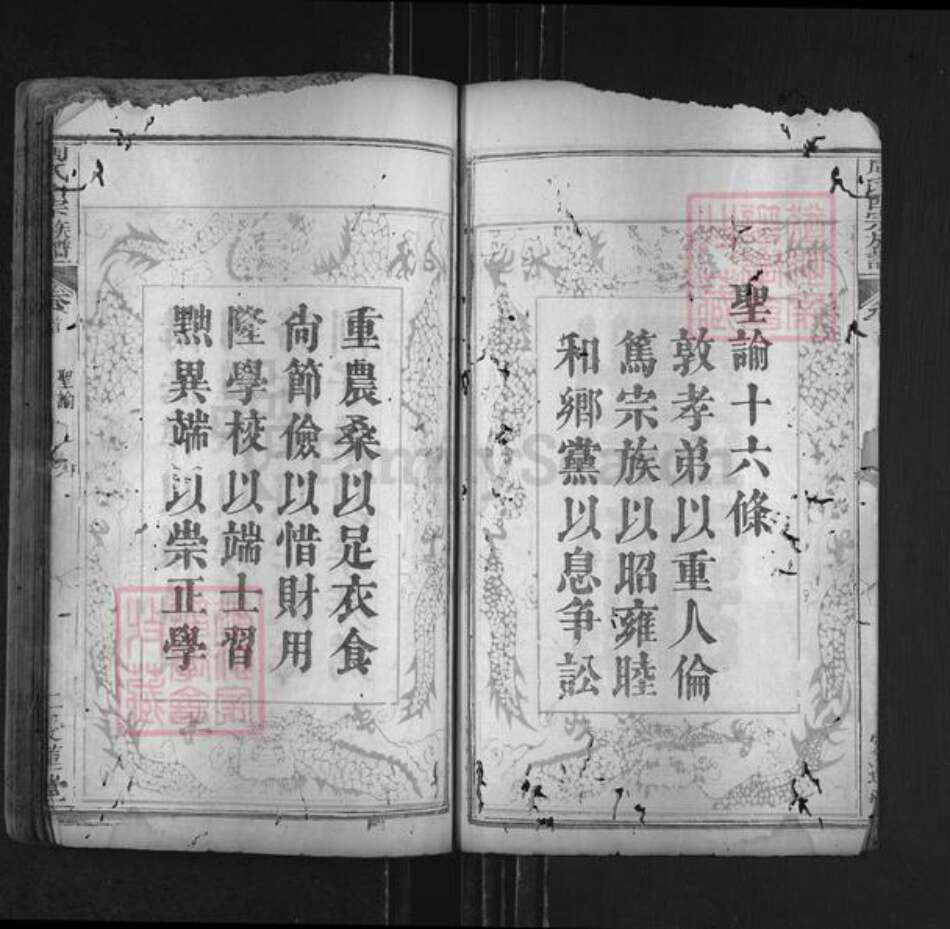 聖諭十六條
敦孝弟以重人倫
篤宗族以昭雍睦
和鄉黨以息争訟
重農桑以足衣食
尚節儉以惜財用
隆學校以端士習
黜異端以崇正學
聖諭
FamilySearch